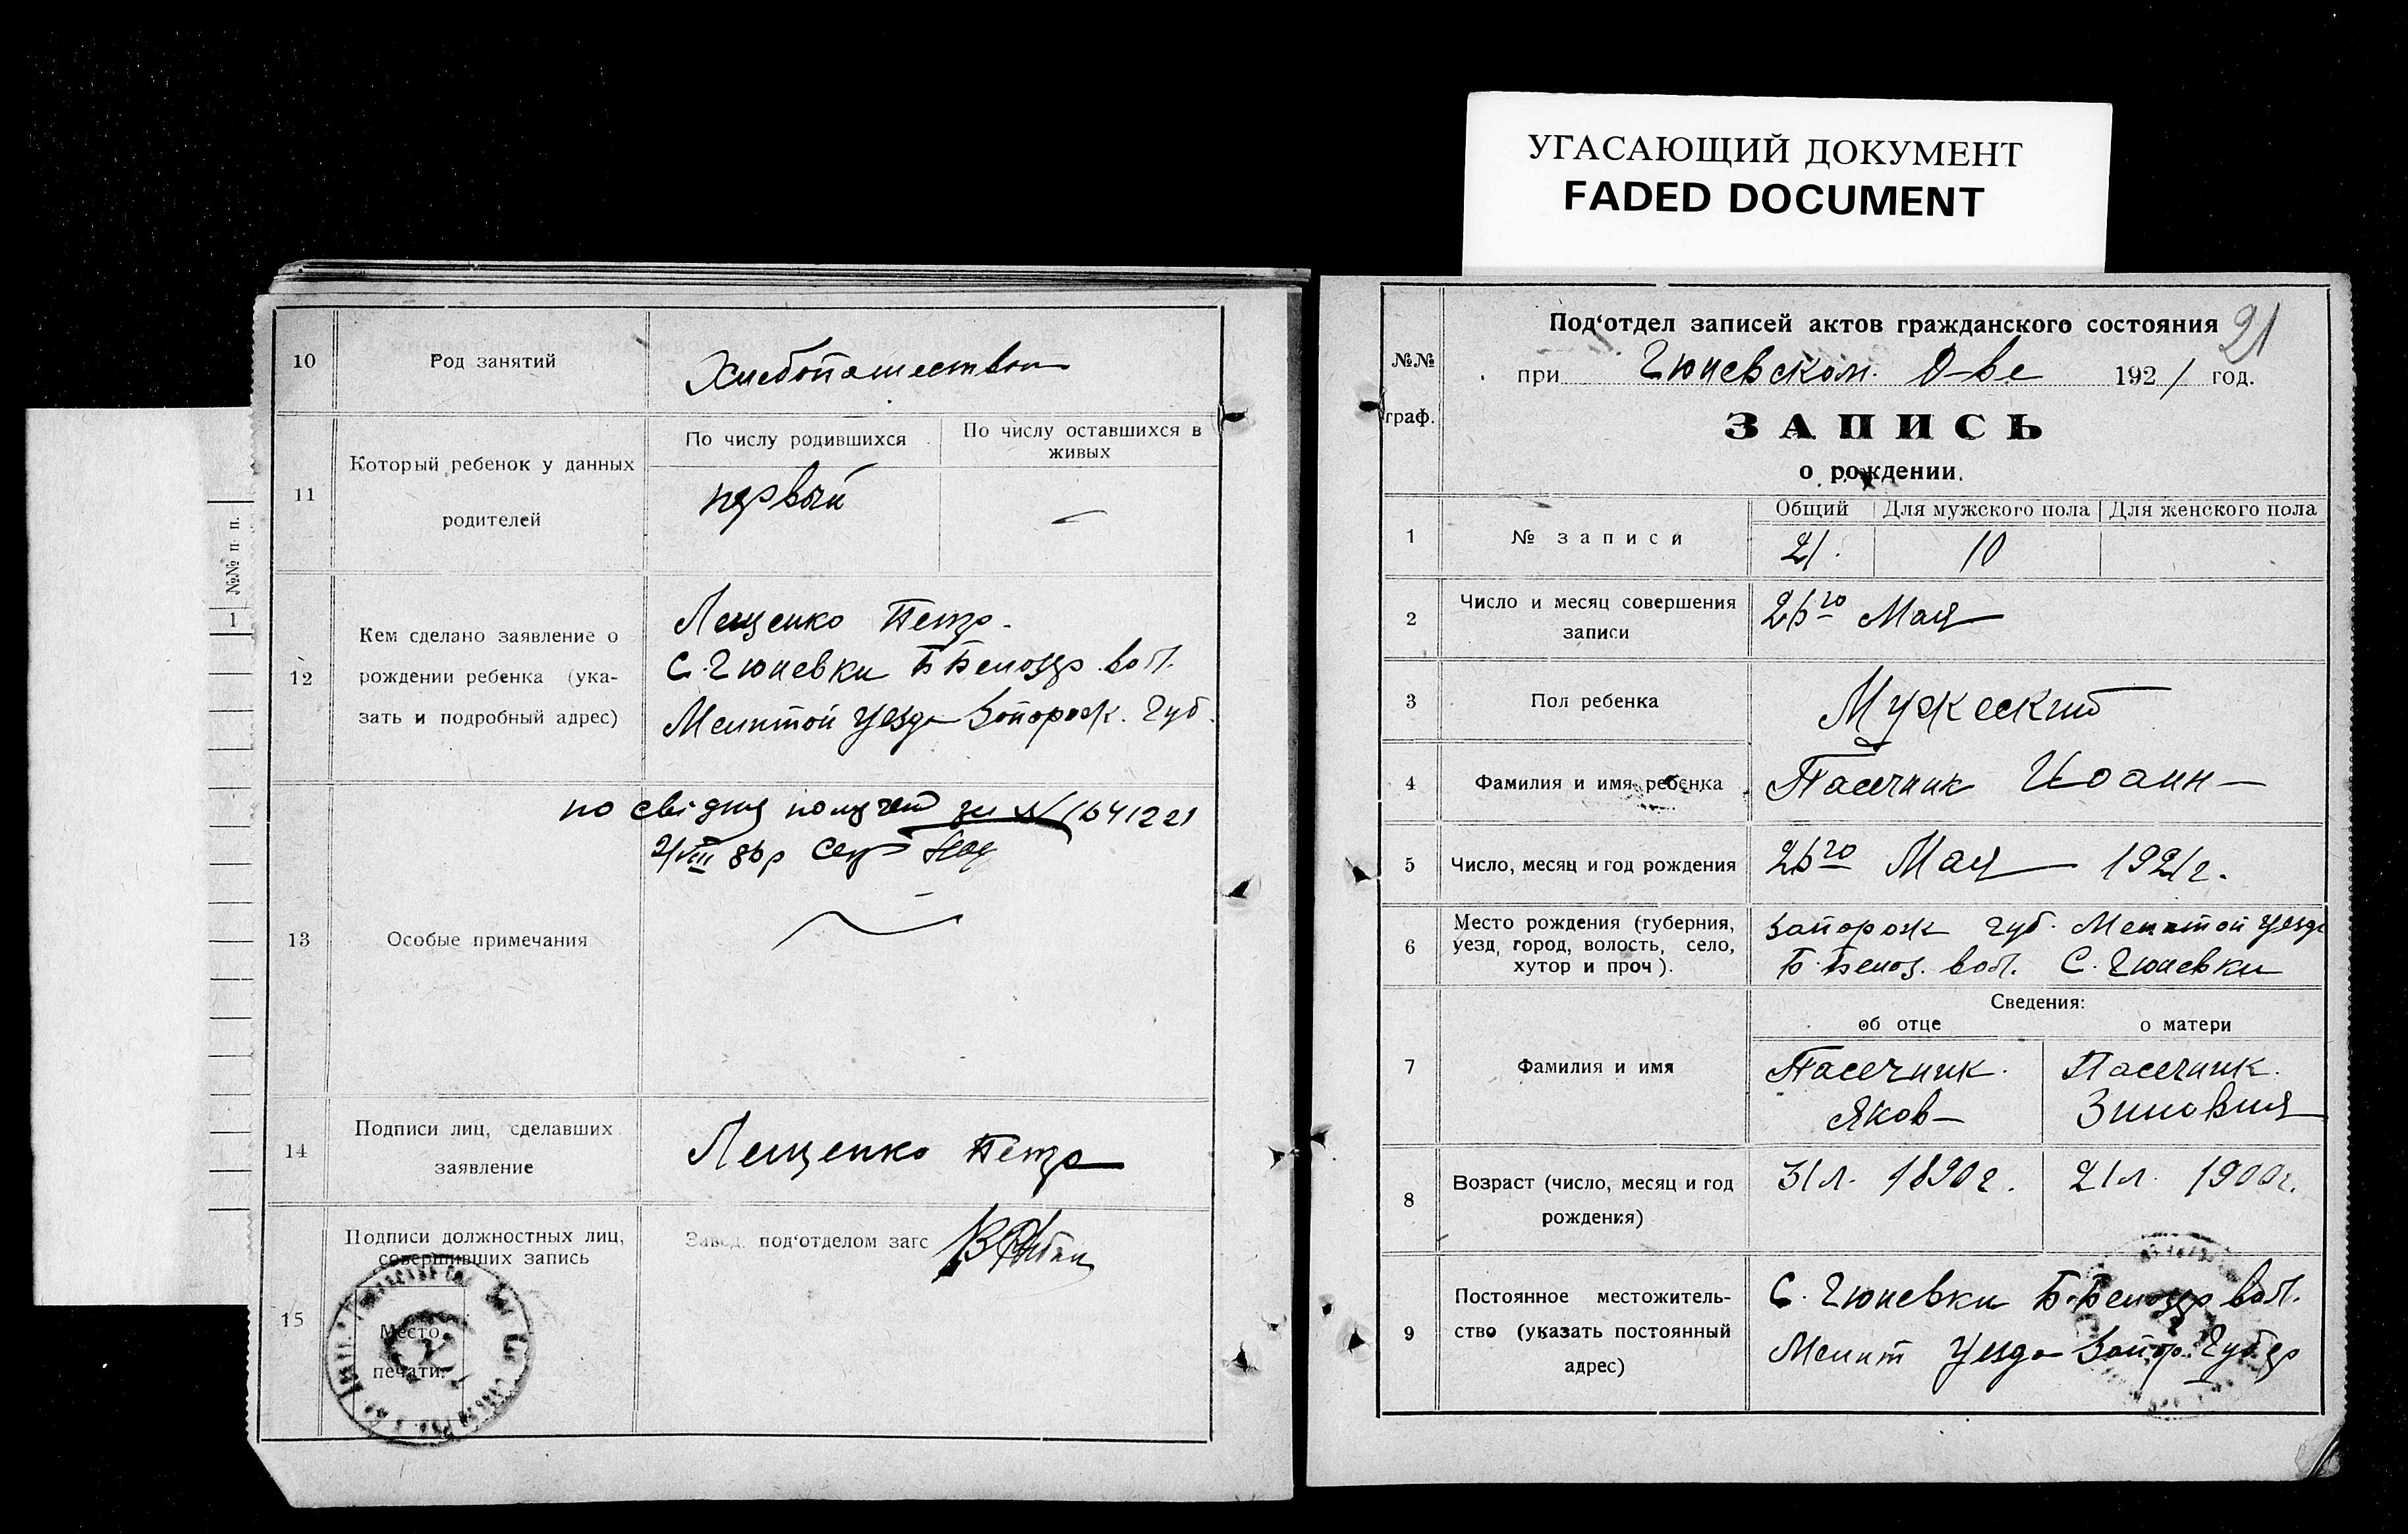 УГАСАЮЩИЙ ДОКУМЕНТ
FADED DOCUMENT
№№ п. п.
1
10 Род занятий Хлебопашеством
11 Который ребенок у данных родителей
По числу родившихся По числу оставшихся в живых
первый —
12 Кем сделано заявление о рождении ребенка (указать и подробный адрес)
Лещенко Петр.
С. Гюневки Б Белозер. вол.
Мелитой уезда Запорож. Губ.
13 Особые примечания
21
14 Подписи лиц, сделавших заявление
Лещенко Петр
15 Подписи должностных лиц, совершивших запись
Завед. под‘отделом загс
Место печати.
№№ граф.
Под‘отдел записей актов гражданского состояния
21
при Гюневском. О-ве 1921 год.
ЗАПИСЬ
о рождении.
1 № записи
Общий Для мужского пола Для женского пола
21. 10
2 Число и месяц совершения записи
26го Мая
3 Пол ребенка Мужеский
4 Фамилия и имя ребенка Пасечник Иоанн
5 Число, месяц и год рождения 26го Мая 1921 г.
6 Место рождения (губерния, уезд, город, волость, село, хутор и проч).
Запорож губ. Мелитой уезда
Б. Белоз. вол. С. Гюневки
Сведения:
об отце о матери
7 Фамилия и имя
Пасечник. Пасечник.
Яков Зиновия
8 Возраст (число, месяц и год рождения)
31 л. 1890 г. 21 л. 1900 г.
9 Постоянное местожительство (указать постоянный адрес)
С. Гюневки Б. Белозер вол.
Мелит уезда Запор. Губер